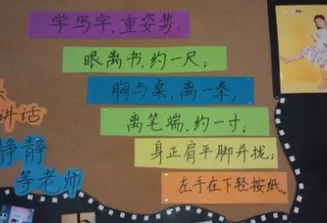 学写字，重姿势，
眼离书，约一尺；
胸与桌，离一拳；
离笔端，约一寸；
身正肩平脚并拢；
左手在下轻按纸。
讲话
静静
等老师